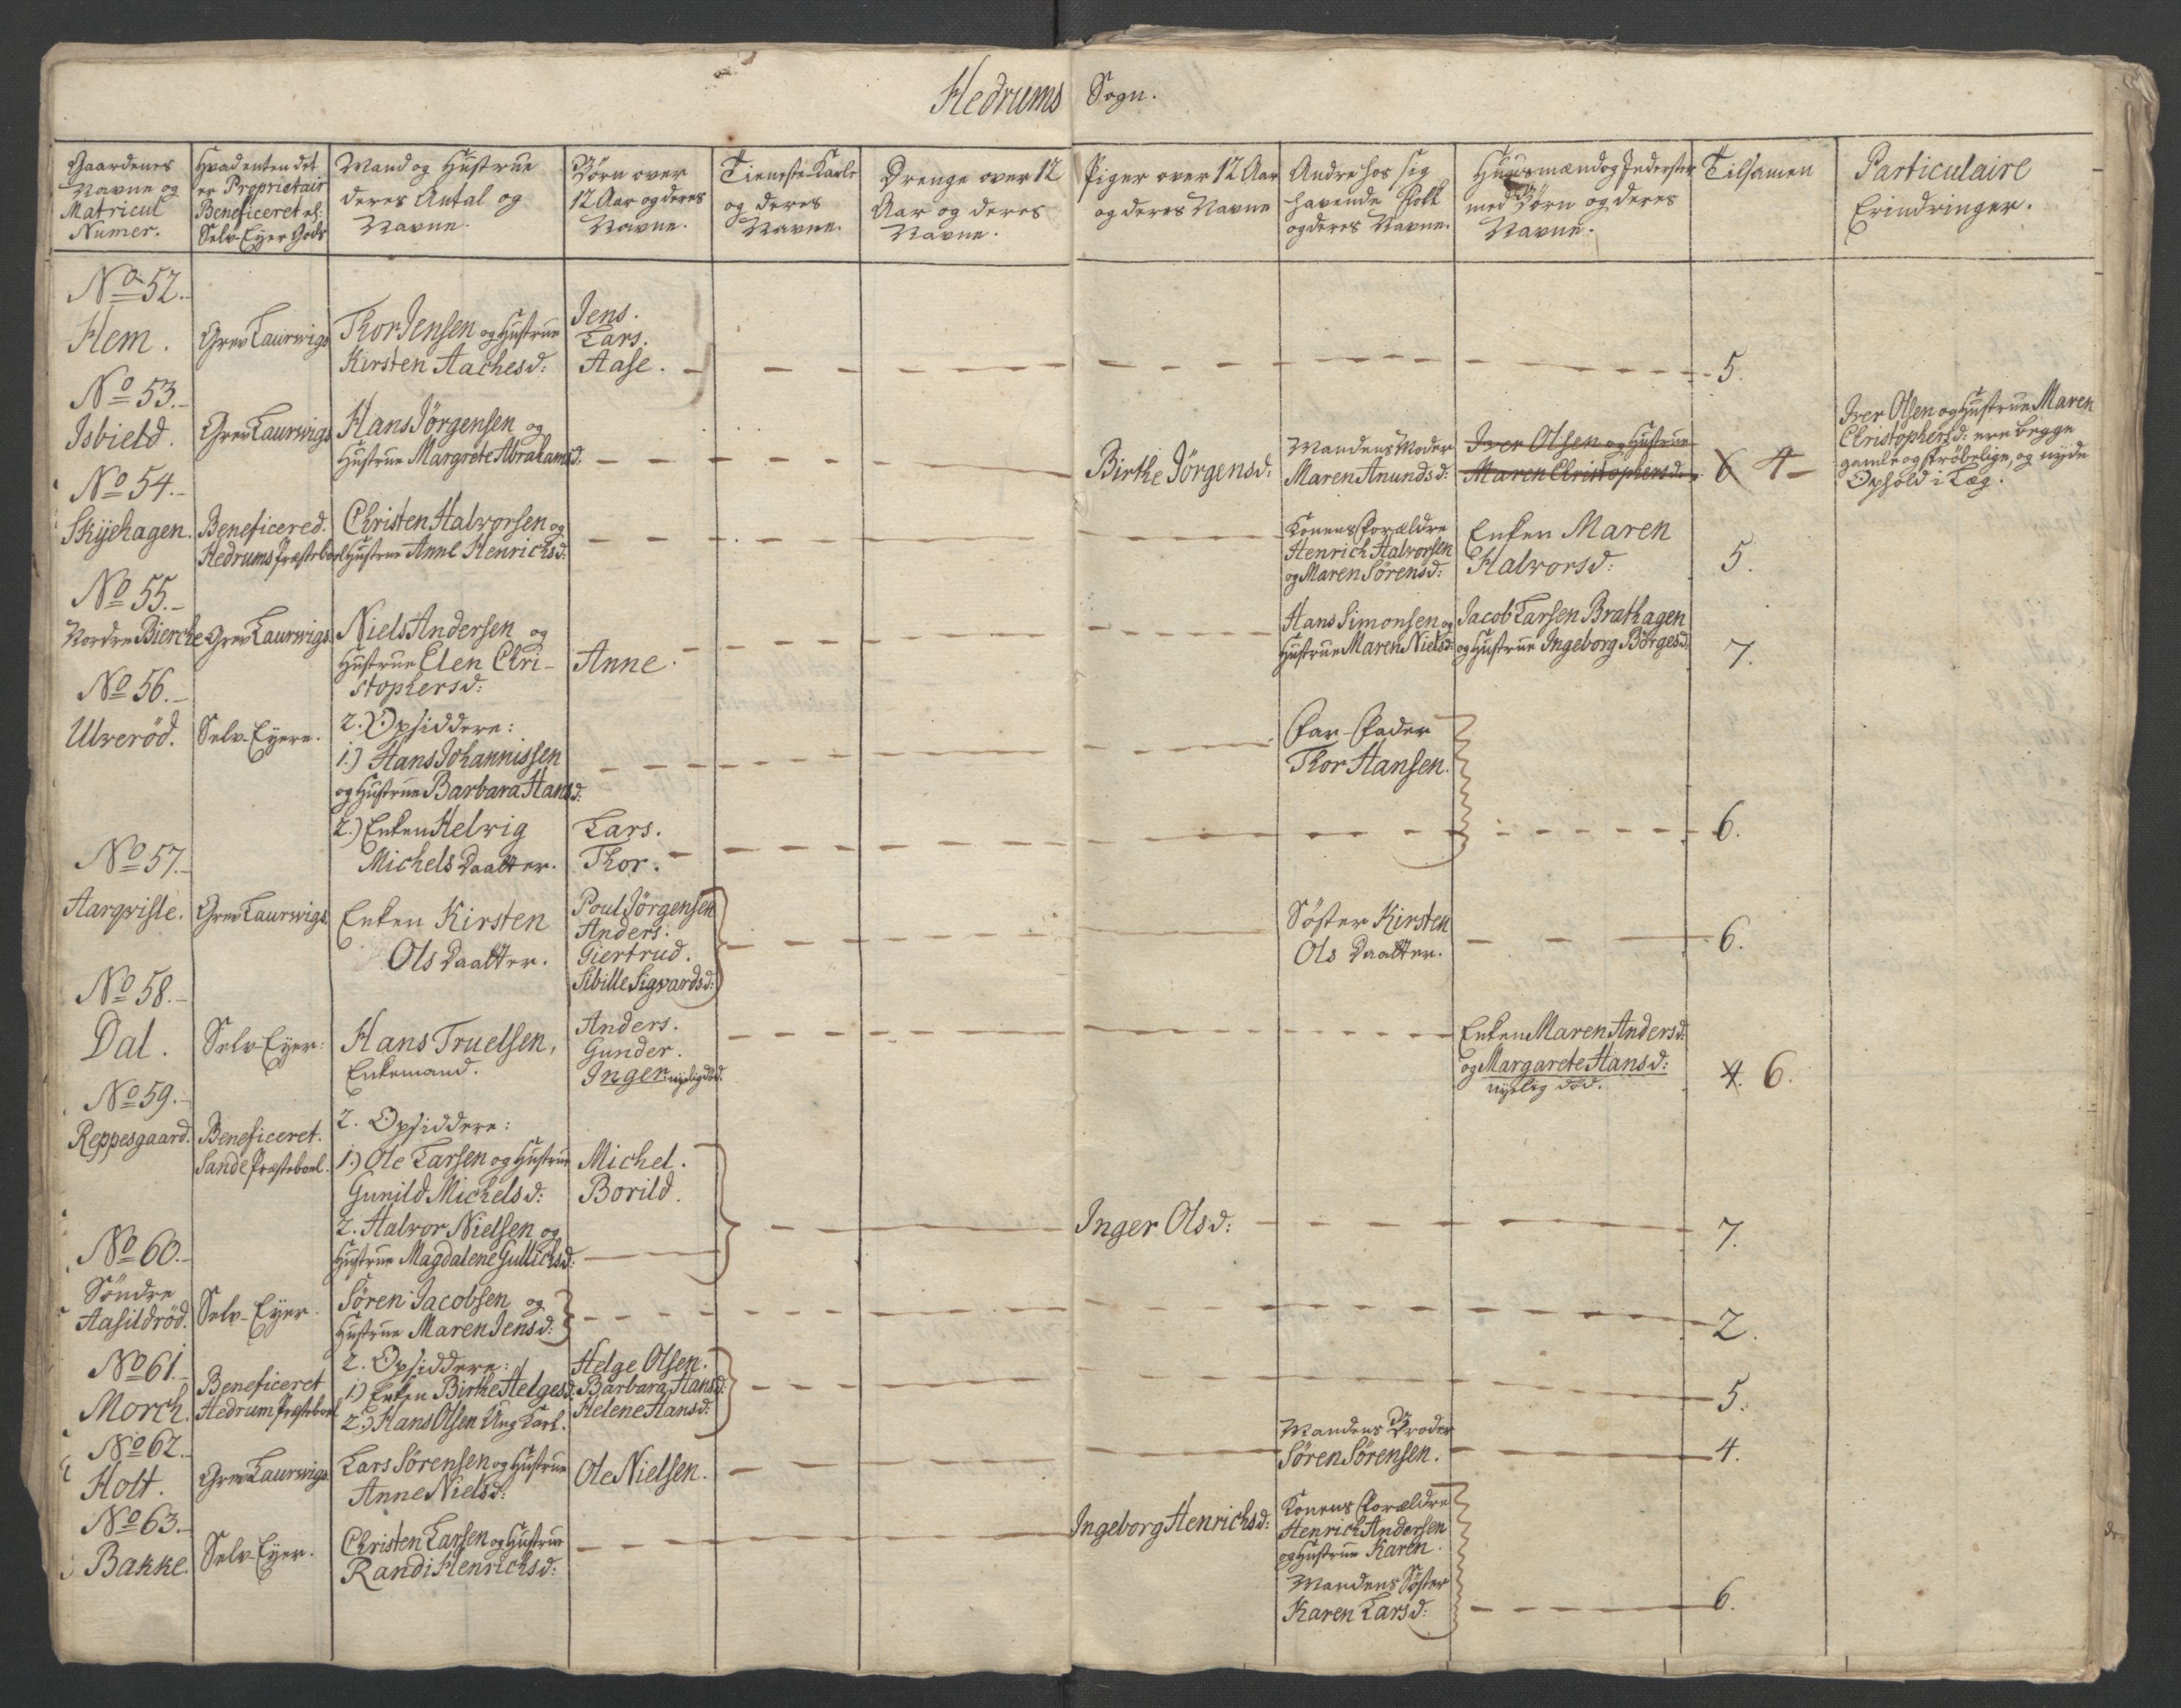 Hedrums Sogn.
Gaardenes Navne og Matricul Numer.
Hvad enten det er Proprietair Beneficeret el: Selv-Eyer Gods
Mand og Hustrue deres Antal og Navne.
Børn over 12 Aar og deres Navne.
Tieneste-Karle og deres Navne.
Drenge over 12 Aar og deres Navne.
Piger over 12 Aar og deres Navne
Andre hos sig havende Folk og deres Navne.
Huusmænd og Inderster med Børn og deres Navne.
Tilsamen
Particulaire Erindringer.
No 52.
Hem.
Grev Laurwigs
Thor Jensen og Hustrue
Kirsten Aachesd:
Jens.
Lars.
Aase.
5.
No 53.
Isbield.
Grev Laurwigs
Hans Jörgensen og
Hustrue Margrete Abrahamsd:
Birthe Jörgensd:
Mandens Moder
Maren Anundsd:
Iver Olsen og Hustrue
Maren Christophersd:
6 4
Iver Olsen og Hustrue Maren
Christophersd: ere begge
gamle og skrøbelige, og nyde
Ophold i Læg.
No 54.
Skyehagen.
Beneficered.
Hedrums Præsteboel
Christen Halvorsen og
Hustrue Anne Henrichsd:
Konens Forældre
Henrich Halvorsen
og Maren Sörensd:
Enken Maren
Halvorsd:
5.
No 55.
Nordre Bierche
Grev Laurwigs.
Niels Andersen og
Hustrue Elen Chri-
stophersd:
Anne.
Hans Simonsen og
Hustrue Maren Nielsd:
Jacob Larsen Brathagen
og Hustrue Ingeborg Börgesd:
7.
No 56.
Ulveröd.
Selv-Eyere.
2. Opsiddere:
1.) Hans Johannissen
og Hustrue Barbara Hansd:
2.) Enken Helvig
Michels Daatter.
Lars.
Thor.
Far-Fader
Thor Hansen.
6.
No 57.
Aarqvisle.
Grev Laurwigs.
Enken Kirsten
Ols Daatter.
Poul Jörgensen
Anders.
Giertrud.
Sibille Sigvardsd:
Söster Kirsten
Ols Daatter.
6.
No 58.
Dal.
Selv-Eyer:
Hans Truelsen,
Enkemand.
Anders.
Gunder.
Inger. nyelig död.
Enken Maren Andersd:
og Margarete Hansd:
nyelig död.
4. 6.
No 59.
Reppesgaard.
Beneficeret.
Sande Præsteboel.
2. Opsiddere:
1.) Ole Larsen og Hustrue
Gunild Michelsd:
2. Halvor Nielsen og
Hustrue Magdalene Gullichsd:
Michel.
Borild.
Inger Olsd:
7.
No 60.
Söndre
Aasildröd.
Selv-Eyer.
Sören Jacobsen og
Hustrue Maren Jensd:
2.
No 61.
Morch.
Beneficeret
Hedrum Præsteboel
2. Opsiddere:
1.) Enken Birthe Helgesd:
2.) Hans Olsen Ung Karl.
Helge Olsen.
Barbara Hansd:
Helene Hansd:
5.
No 62.
Holt.
Grev Laurwigs.
Lars Sörensen og Hustrue
Anne Nielsd:
Ole Nielsen.
Mandens Broder
Sören Sörensen.
4.
No 63.
Bakke.
Selv-Eyer.
Christen Larsen og Hustrue
Randi Henrichsd:
Ingeborg Henrichsd:
Konens Forældre
Henrich Andersen
og Hustrue Karen.
Mandens Söster
Karen Larsd:
6.